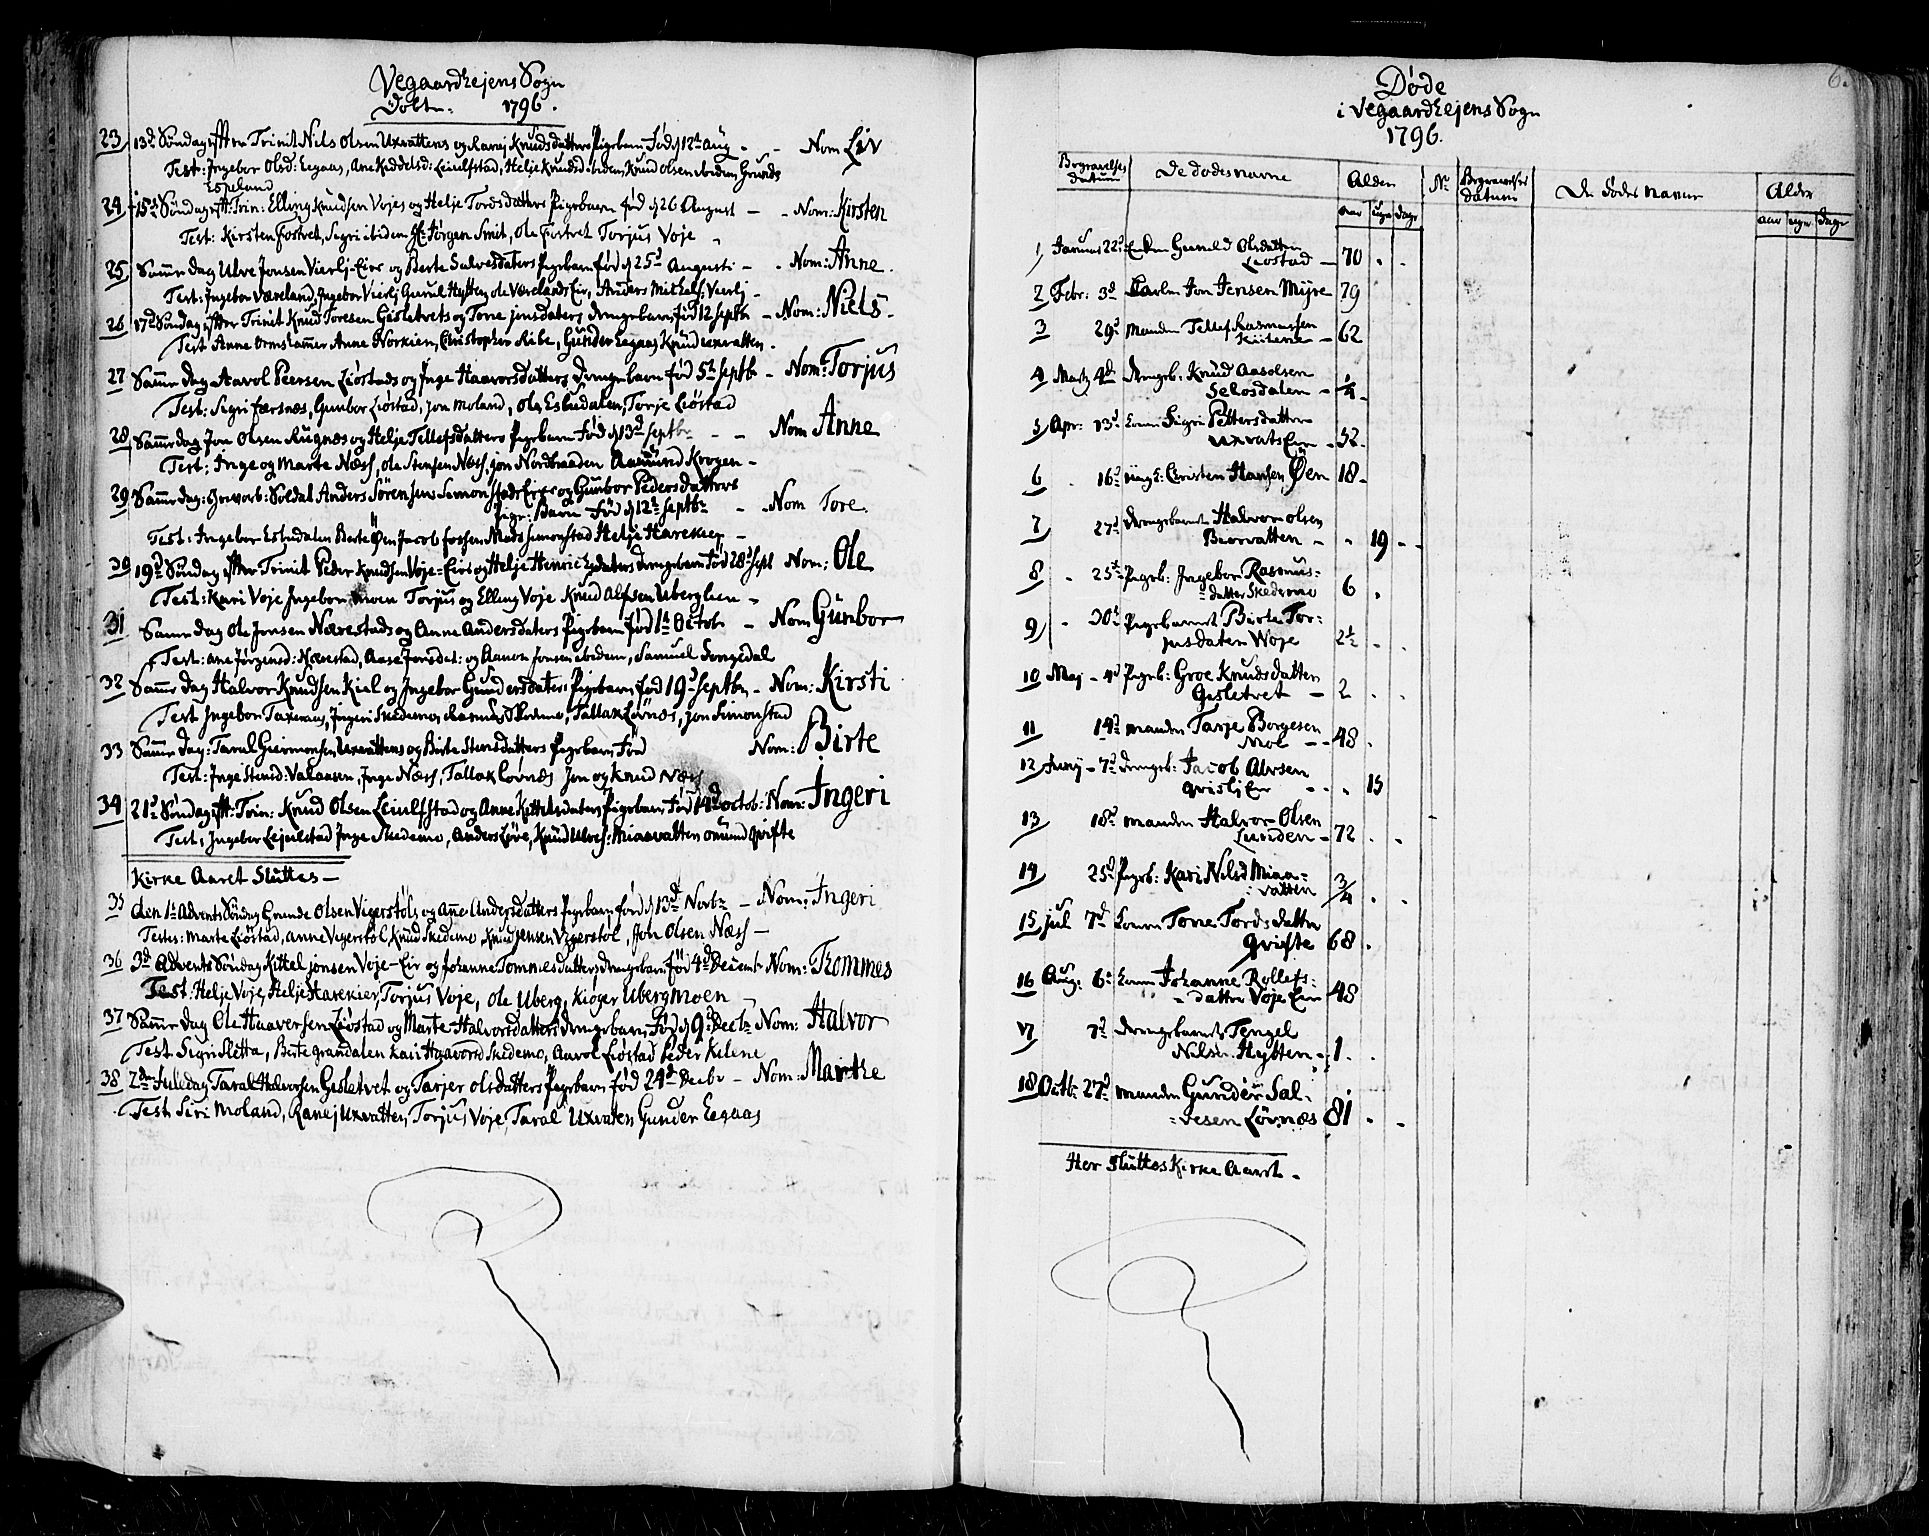 Vegaardhejens Sogn
Døbte. 1796.
23 13d Søndag efter Trinit Niels Olsen Uxvattens og Ranej Knudsdatters Pigebarn Fød d 12te Aug - - Nom Liv
Test: Ingebor Olsd: Eegaas, Ane Keddelsd: Leiulfstad, Helje Knudsd ibidem, Knud Olsen ibidem, Gunds
Espeland
24 15d Søndag eft: Trin: Elling Knudsen Vojes og Helje Tordsdatters Pigebarn fød d 26 August - - Nom: Kirsten
Test: Kirsten Fostvet, Sigri ibidem Hr Jørgen Smit, Ole Fostvet Torjus Voje
25 Samme dag Ulve Jonsen Vierlj-Eier og Berte Salvesdaters Pigebarn fød d 25d Augusti - - Nom: Anne.
Test: Ingebor Væreland, Ingebor Vierlj Gunil Hytten Ole Værelands Eie, Anders Mickels: Vierlj -
26 17d Søndag efter Trinit Knud Toresen Gisletvets og Tone Jensdaters drengebarn fød 12 Septbr - Nom: Niels.
Test Anne Ormshammer Anne Norkien, Christopher Ribe, Gunder Eegaas Knud uxvatten.
27 Samme dag Aavol Peersen Liøstads og Inge Haavorsdatters Drengebarn fød 5te Septb - Nom: Torjus
Test: Sigri Færsnæs, Gunbor Liøstad, Jon Moland, Ole Eskedalen, Torje Liøstad
28 Samme dag Jon Olsen Rugnæs og Helje Tellefsdatters Pigebarn Fød d 13d Septbr - - Nom Anne
Test: Inge og Marte Næss, Ole Stensen Næss, Jon Nordbraaden Aamund Krogen -
29 Samme dag: Gevorb: Soldat Anders Sörensens Simonstads Eier og Gunbor Pedersdatters
Pige: Barn Fød d 12te Septbr - - Nom Tore.
Test: Ingebor Eskedalen Berte Øen Jacob Fossen Mads Simonstad Helje Harekier -
30 19d Søndag efter Trinit Peder Knudsen Voje-Eie og Helje Henricsdaters drengebarn Fød 28d Sept Nom: Ole
Test: Kari Voje Ingebor moen Torjus og Elling Voje Knud Alfsen Uberglien -
31 Samme dag Ole Jensen Nærestads og Anne Andersdaters Pigebarn fød 1te Octob - Nom Gunbor
Test: Ane Jørgensd: Nærestad, Aase Jonsdat: og Aanon Jonsen ibidem, Samuel Songedal
32 Samme dag Halvor Knudsen Kiel og Ingebor Gundersdaters Pigebarn fød 19d Septbr - Nom: Kirsti
Test Ingebor Taxeraas, Ingeri Skedemo, Rasmus Skedemo, Tallak Løvnæs, Jon Simonstad
33 Samme dag: Taral Giermonsen Uxvattens og Birte Stensdatters Pigebarn Fød Nom: Birte
Test: Inge Stensd: Valaasen, Inge Næss, Tallak Løvnæs Jon og Knud Næss
34 21d Søndag eft: Trin: Knud Olsen Leiulfstad og Anne Kittelsdaters Pigebarn Fød 14d Octob: Nom: Ingeri
Test: Ingebor Lejulstad Inge Skedemo, Anders Løve, Knud Ulves: Miaavatten Omund Grifte
Kirke Aaret Sluttes -
35 den 1te Advents Søndag Gunde Olsen Vigerstøls og Anne Andersdatters Pigebarn fød d 13d Novbr - Nom: Ingeri
Testes: Marte Liøstad, Anne Vegerstøl, Knud Skedemo, Knud Jensen Vigerstøl, Jon Olsen Næss -
36 3d Advents Søndag Kittel Jonsen Voje-Eie og Johanne Tommesdatters drengebarn fød 4d Decemb: Nom: Thommes
Test: Helje Voje, Helje Harekier, Torjus Voje, Ole Uberg, Kiøger Ubergmoen -
37 Samme dag Ole Haaversen Liøstad og Marte Halvorsdatters drengebarn Fød d 9d Decbr Nom: Halvor
Test Sigri Sletta, Berte grandalen Kari Haavorsd Skedemo, Aavol Liøstad Peder Kelene
38 2den Juledag Taral Halversen Gisletvet og Tarjer Olsdatters Pigebarn fød 24d Decbr - Nom: Marthe
Test Siri Moland, Ranej Uxvatten, Torjus Voje, Taral Uxvaten Gunder Eegaas
Døde
i Vegaardhejens Sogn
1796.
Begravelses datum De dødes navne Alder Nr Begravelses datum De dødes navne Alder
aar uger dage aar uger dage
1 Januari 22d Enken Gunild Olsdatter
Liøstad - 70 - -
2 Febr: 3d Karlen Jon Jensen Myre 79
3 29d Manden Tellef Rasmussen
Kiilene - 62
4 Marty 4d drengb: Knud Aasolsen
Selosdalen - 1/4 -
5 Apr: 13d konen Sigri Pettersdatter
uxvats Eie - 52 -
6 - 16d ungk: Christen Hansen Øen 18 -
7 27d drengebarnet Halvor Olsen
Biorvatten - - 19 - -
8 - 25te Pigeb: Ingebor Rasmus-
datter Skedemo 6 -
9 - 30te Pigebarnet Birte Tor-
jusdater Woje 2½ - -
10 Maj - 4d Pigeb: Groe Knudsdatter
Gisletvet - 2 - -
11 14d manden Tarje Borgesen
Moe - - 48 -
12 Junij - 7d drengeb: Jacob Alvsen
Grislj Eie - - - 15
13 18d manden Halvor Olsen
Lunden - 72 - -
14 25d Pigeb: Kari Nilsd Miaa-
vatten 3/4 - -
15 Jul 7d konen Tone Tordsdatter
Grifte 68 -
16 Aug: 6te konen Johanne Rollefs-
datter Voje Eie 48
17 7d drengebarnet Tengel
Nilsen Hytten - 1 - -
18 Octb: 27d manden Gunder Sal-
vesen Løvnæs 81 - -
Her Sluttes Kirke Aaret -